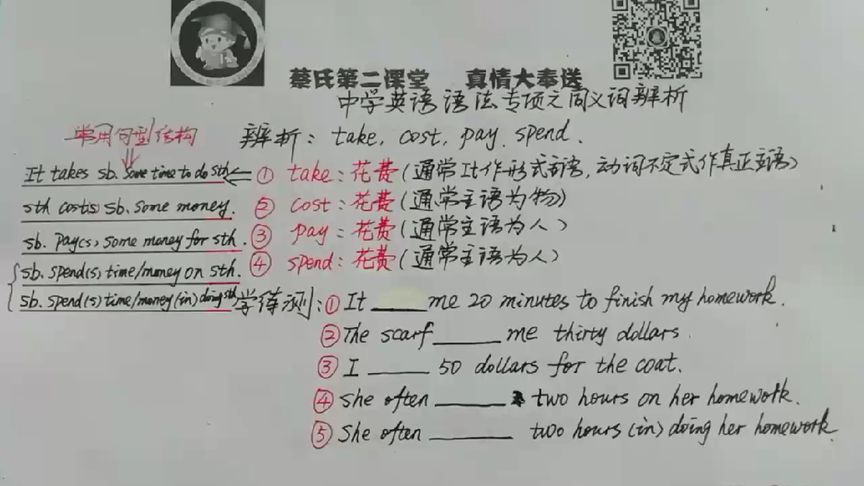 蔡氏第二课堂 真情大奉送
中学英语语法专项之同义词辨析
常用句型结构
辨析：take, cost, pay, spend.
It takes sb. some time to do sth
① take：花费(通常It作形式主语,动词不定式作真正主语)
sth cost(s) sb. some money.
② cost：花费(通常主语为物)
sb. pay(s) some money for sth.
③ pay：花费(通常主语为人)
sb. spend(s) time/money on sth.
④ spend：花费(通常主语为人)
sb. spend(s) time/money (in) doing sth
学练测：① It ____ me 20 minutes to finish my homework.
② The scarf ____ me thirty dollars.
③ I ____ 50 dollars for the coat.
④ She often ____ two hours on her homework.
⑤ She often ____ two hours (in) doing her homework.